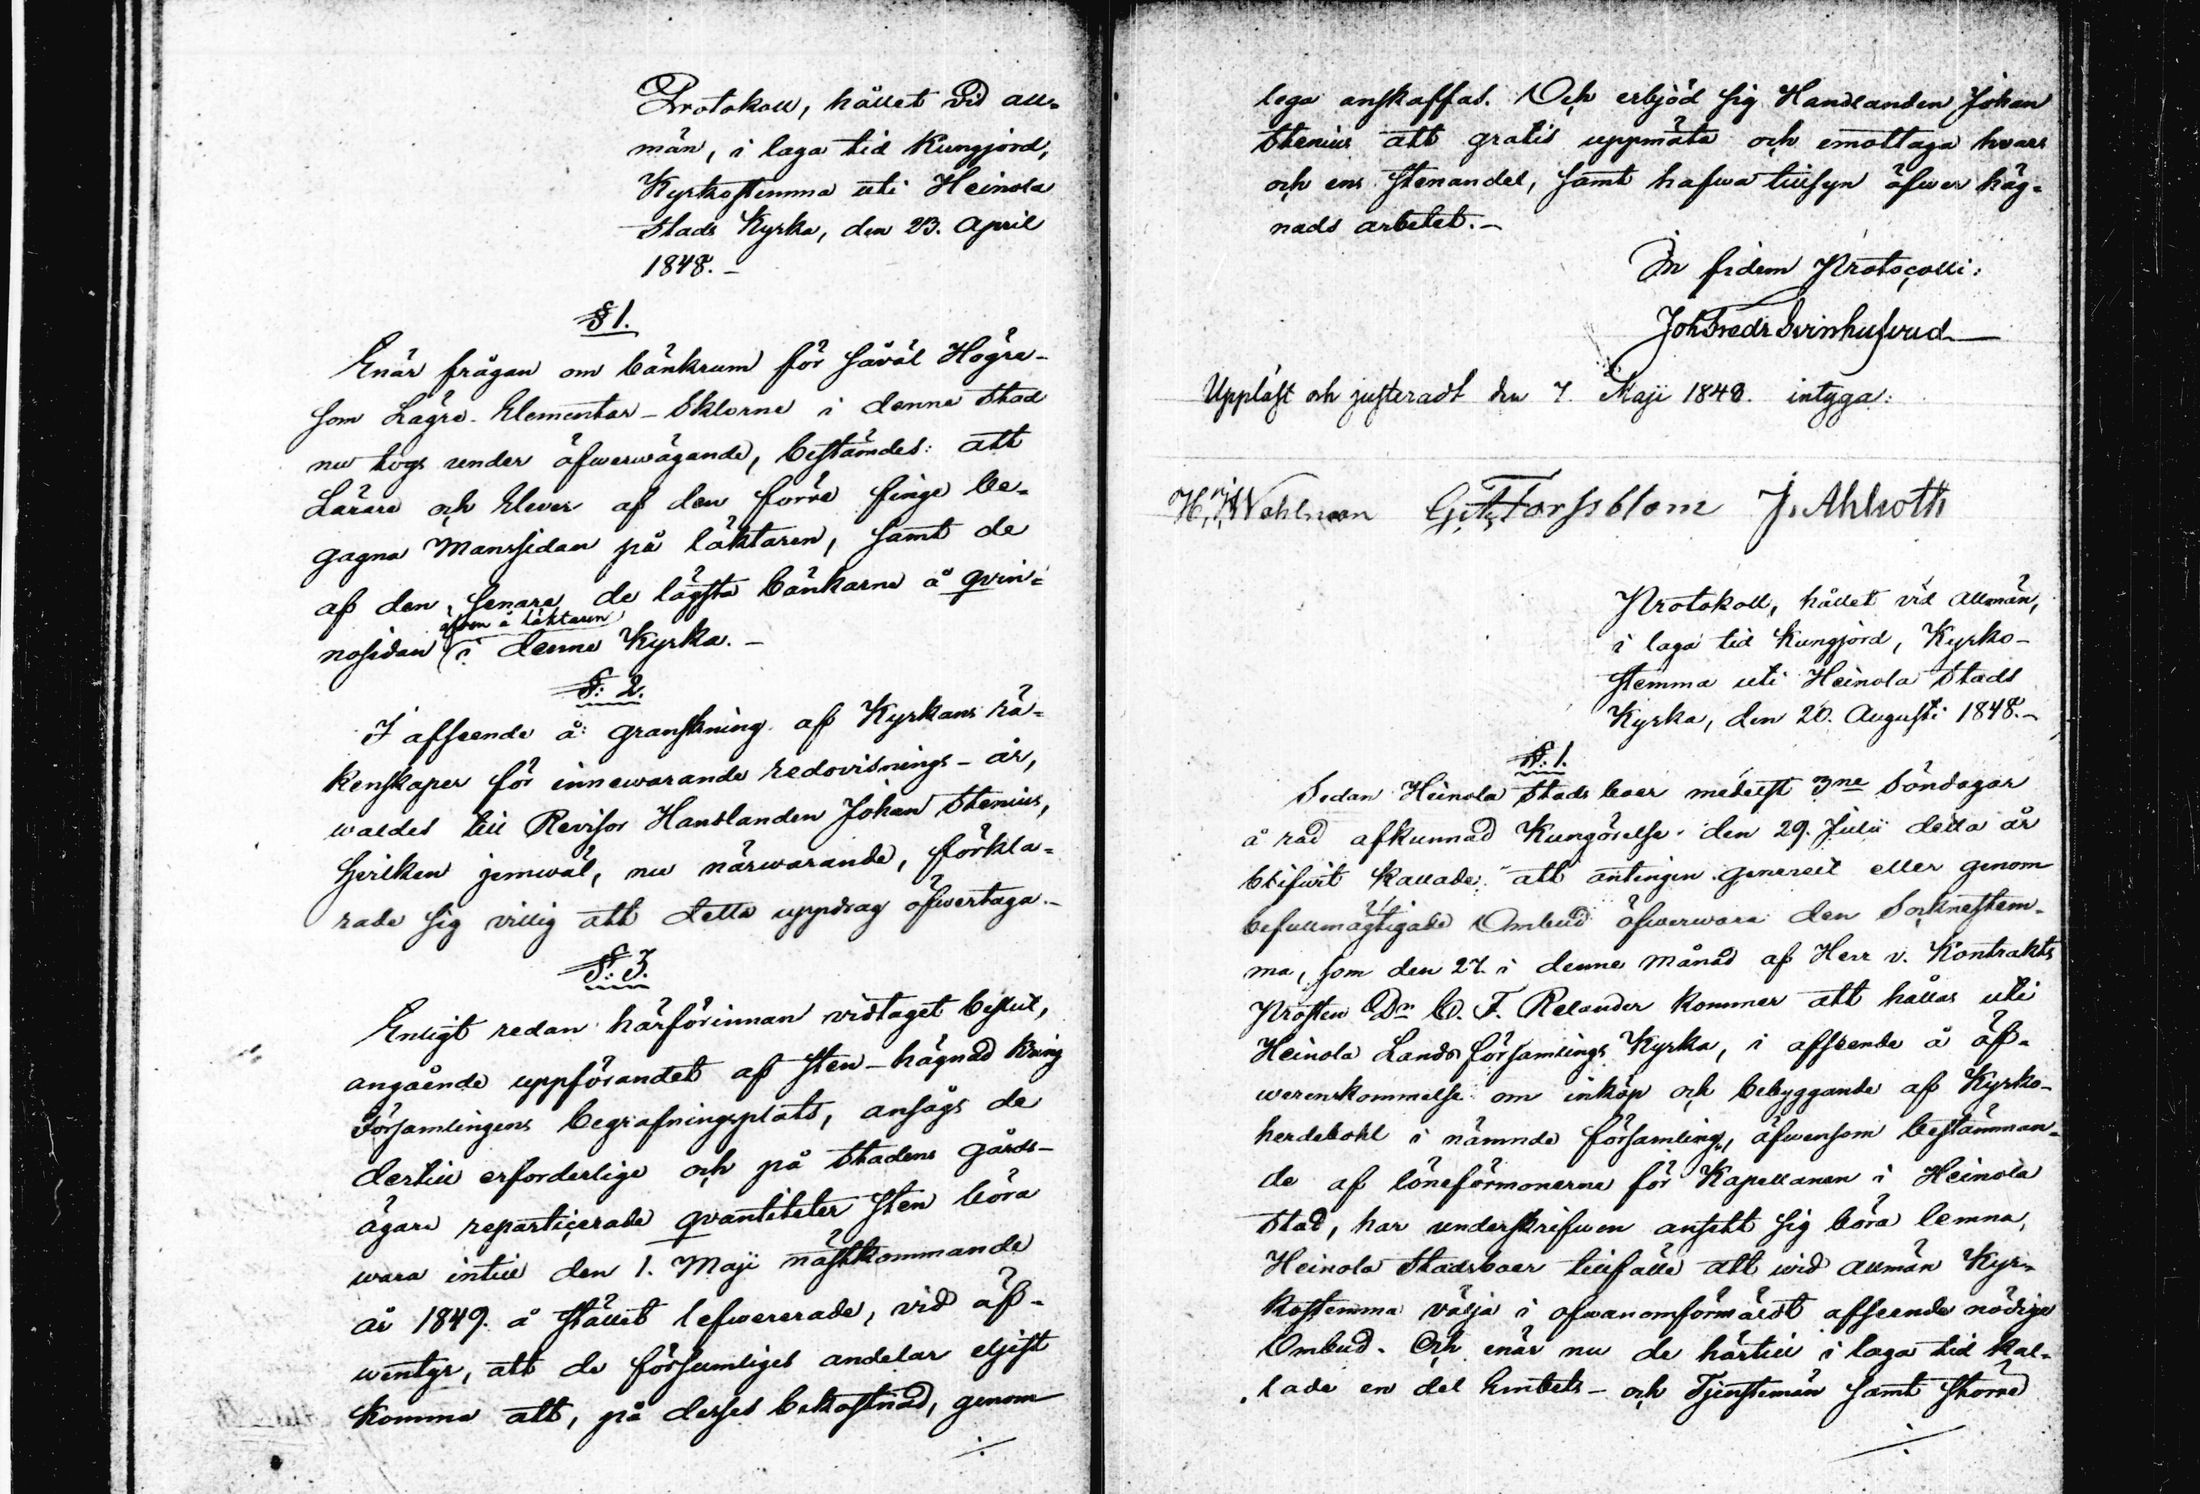 Protokoll, hållet vid all-
män, i laga tid kungjord,
Kyrkostemma uti Heinola
Stads Kyrka, den 23. April
1848.-
§ 1.
Enär frågan om bänkrum för såväl Högre-
som Lägre- Elementar-Skolorne i denne Stad
nu togs under öfwerwägande, bestämdes: att
Lärare och Elever af den förre finge be-
gagna Manssidan på läktaren, samt de
af den senare de lägsta bänkarne å qvin-
äfwen å läktaren
nosidan i denne Kyrka.-
§: 2.
I afseende å granskning af Kyrkans rä-
kenskaper för innewarande redovisnings-år,
waldes till Revisor Handlanden Johan Stenius,
hvilken jemwäl, nu närwarande, förkla-
rade sig villig att detta uppdrag öfwertaga.-
§: 3.
Enligt redan härförinnan vidtaget beslut,
angående uppförandet af sten-hägnad kring
Församlingens begrafningsplats, ansågs de
dertill erforderlige och på Stadens gårds-
ägare reparticerade qvantiteter sten böra
wara intill den 1. Maji nästkommande
år 1849. å stället lefwererade, vid äf-
wentyr, att de försumliges andelar eljest
komma att, på desses bekostnad, genom
lega anskaffas. Och erbjöd sig Handlanden Johan
Stenius att gratis uppmäta och emottaga hvars
och ens stenandel, samt hafwa tillsyn öfwer häg-
nads arbetet.-
In fidem Protocolli:
Joh Fredr Svinhufvud
Uppläst och justeradt den 7. Maji 1848. intyga:
H. J. Wahlman G. A. Forssblom J. Ahlroth
Protokoll, hållet vid allmän,
i laga tid kungjord, Kyrko-
stemma uti Heinola Stads
Kyrka, den 20. Augusti 1848.-
§: 1.
Sedan Heinola Stads boer medelst 3ne Söndagar
å rad afkunnad Kungörelse den 29. Julii detta år
blifwit kallade att antingen generelt eller genom
befullmägtigade Ombud öfwerwara den Socknestem-
ma, som den 27. i denne månad af Herr v. Kontrakts
Prosten Dr B. F. Relander kommer att hållas uti
Heinola Landsförsamlings Kyrka, i afseende å öf-
werenskommelse om inköp och bebyggande af Kyrko-
herdebohl i nämnde församling, äfwensom bestämman-
de af löneförmonerne för Kapellanen i Heinola
Stad, har underskrifwen ansett sig böra lemna,
Heinola Stadsboer tillfälle att wid allmän Kyr-
kostemma välja i ofwanomförmäldt afseende nödige
Ombud. Och enär nu de härtill i laga tid kal-
lade en del Embets- och Tjenstemän samt större